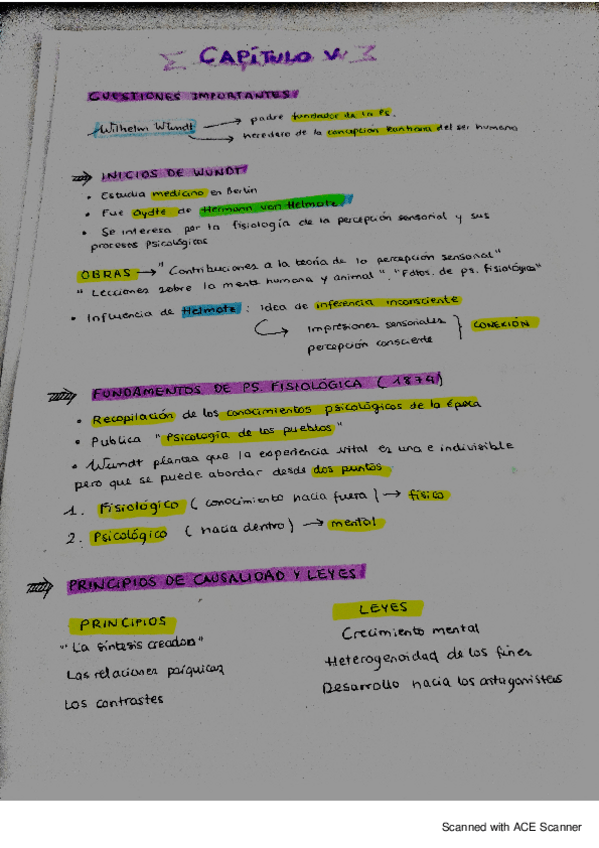 CAPÍTULO V
CUESTIONES IMPORTANTES
Wilhelm Wundt → padre fundador de la Ps.
→ heredero de la concepción Kantiana del ser humano
⇒ INICIOS DE WUNDT
• Estudia medicina en Berlín
• Fue Aydte de Hermann von Helmotz
• Se interesa por la fisiología de la percepción sensorial y sus
procesos psicológicos
OBRAS → "Contribuciones a la teoría de la percepción sensorial"
"Lecciones sobre la mente humana y animal". "Fdtos. de ps. fisiológica"
• Influencia de Helmotz: idea de inferencia inconsciente
→ Impresiones sensoriales } CONEXIÓN
percepción consciente
⇒ FUNDAMENTOS DE PS. FISIOLÓGICA (1874)
• Recopilación de los conocimientos psicológicos de la época
• Publica "Psicología de los pueblos"
• Wundt plantea que la experiencia vital es una e indivisible
pero que se puede abordar desde dos puntos
1. Fisiológico (conocimiento hacia fuera) → físico
2. Psicológico (hacia dentro) → mental
⇒ PRINCIPIOS DE CAUSALIDAD Y LEYES
PRINCIPIOS
"La síntesis creadora"
Las relaciones psíquicas
Los contrastes
LEYES
Crecimiento mental
Heterogenoidad de los fines
Desarrollo hacia los antagonistas
Scanned with ACE Scanner